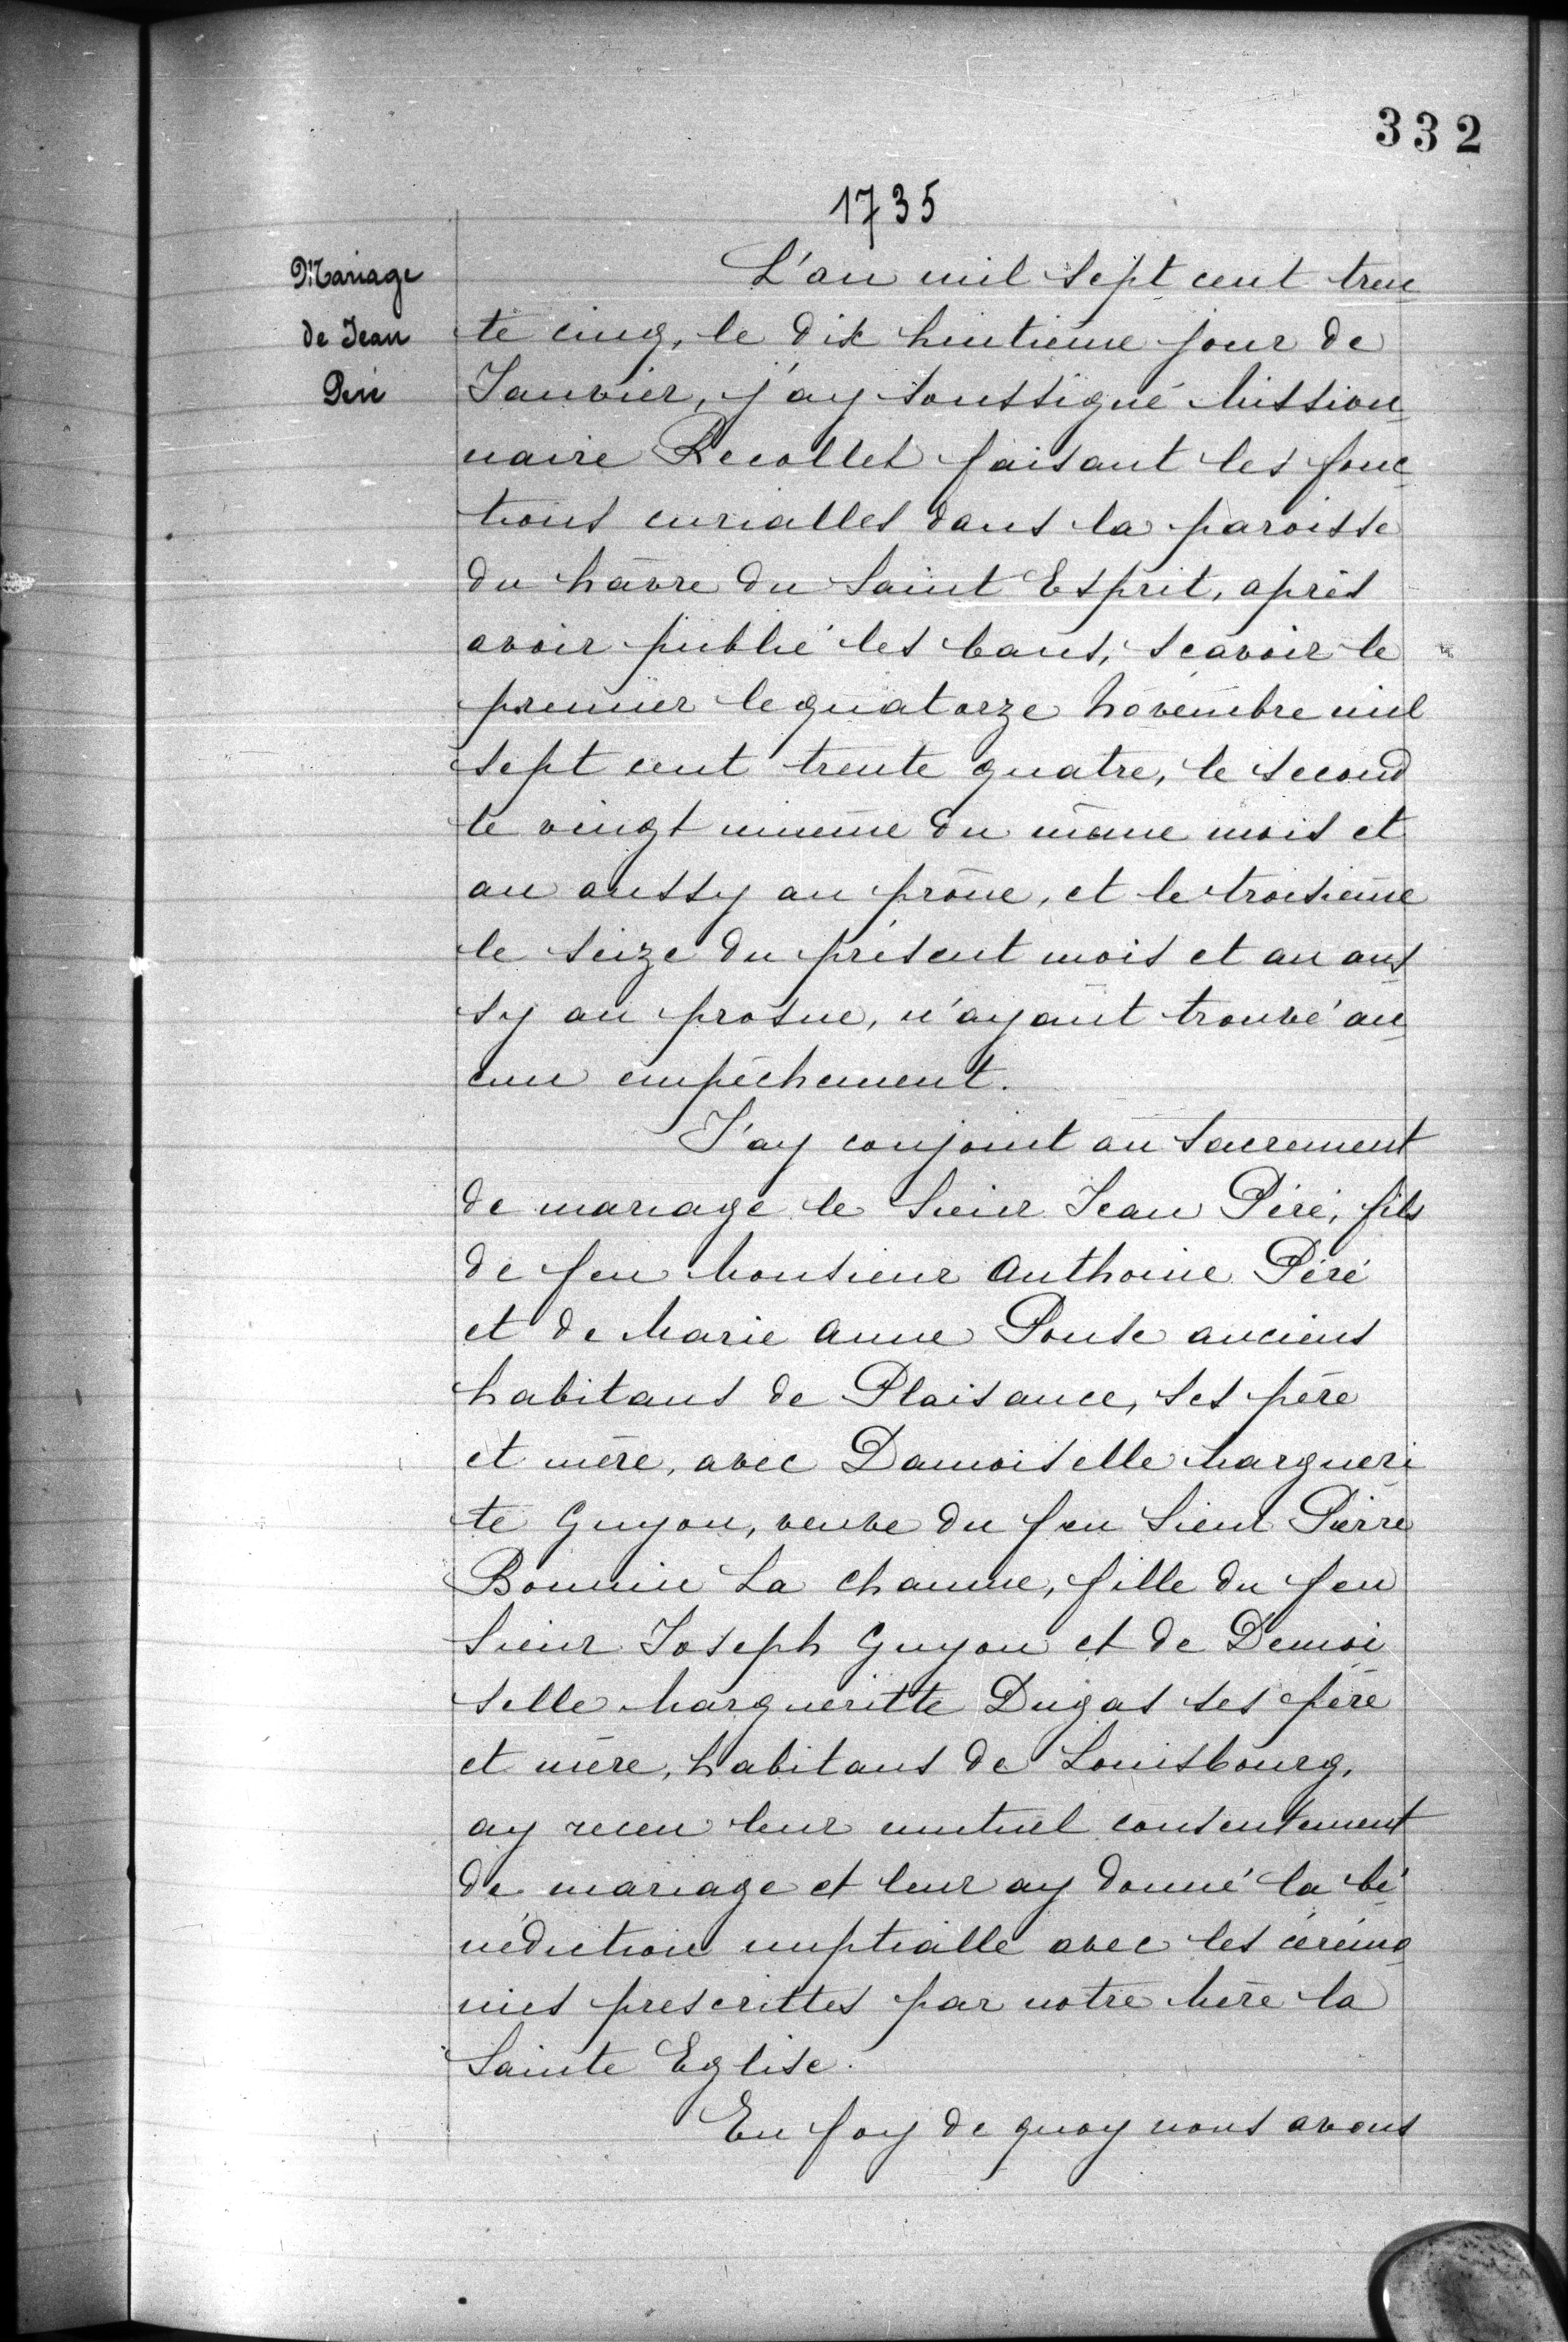 332
1735
Mariage
de Jean
Péré
L'an mil sept cent tren
te cinq, le dix huitième jour de
Janvier, j'ay soussigné Mission
naire Recollet faisant les fonc
tions curialles dans la paroisse
du hâvre du Saint Esprit, après
avoir publié les bans, sçavoir le
premier le quatorze Novembre mil
sept cent trente quatre, le second
le vingt unième du même mois et
an aussy au prône, et le troisième
le seize du présent mois et an aus
sy au prosne, n'ayant trouvé au
cun empêchement.
J'ay conjoint au Sacrement
de mariage le Sieur Jean Péré, fils
de feu Monsieur Anthoine Péré
et de Marie Anne Ponse anciens
habitans de Plaisance, ses père
et mère, avec Damoiselle Margueri
te Guyon, veuve du feu Sieur Pierre
Bonnin La Chaume, fille du feu
Sieur Joseph Guyon et de Demoi
selle Margueritte Dugas ses père
et mère, habitans de Louisbourg,
ay receu leur mutuel consentement
de mariage et leur ay donné la bé
nédiction nuptialle avec les cérémo
nies prescrittes par notre Mère la
Sainte Eglise.
En foy de quoy nous avons